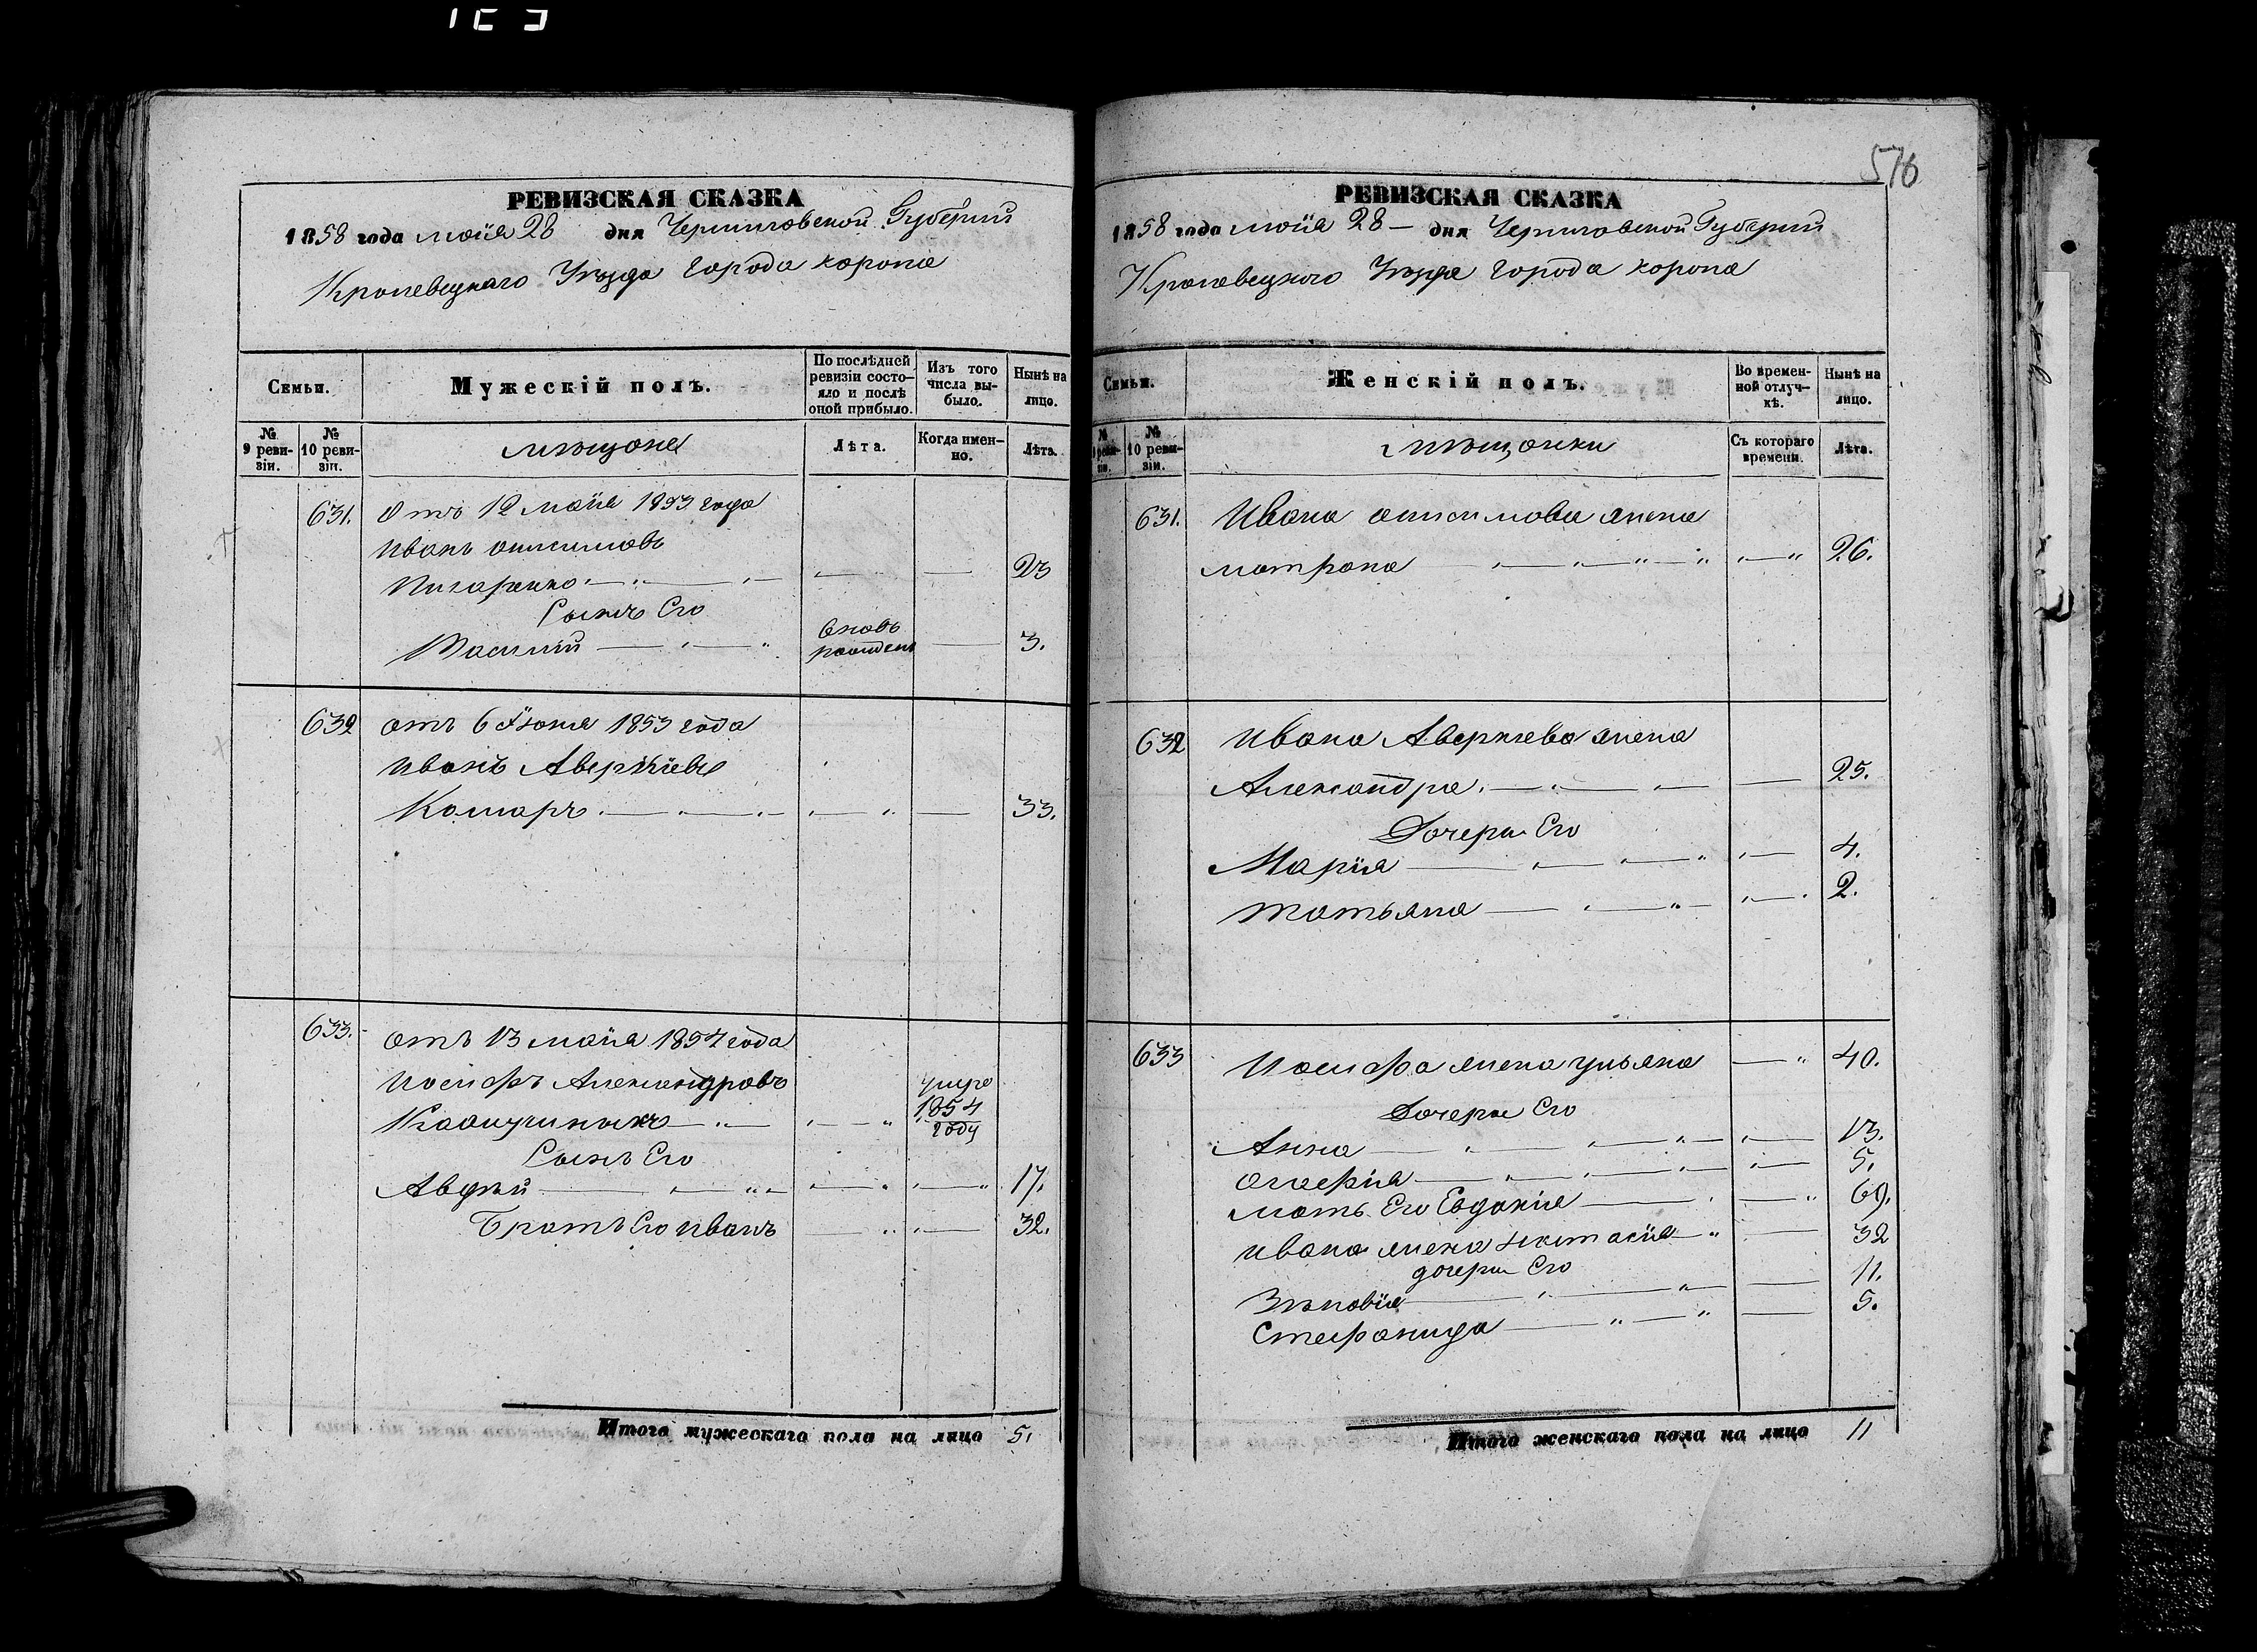 576
РЕВИЗСКАЯ СКАЗКА
1858 года маія 28 дня Черниговской Губерніи
Кролевецкаго Уѣзда города коропа
Семьи.
Мужескій полъ.
По послѣдней ревизіи состояло и послѣ оной прибыло.
Изъ того числа выбыло.
Нынѣ на лицо.
№ 9 ревизіи.
№ 10 ревизіи.
мѣщане
Лѣта.
Когда именно.
Лѣта.
631. Отъ 12 маія 1853 года
Иванъ анисимовъ
Писаренко 23
Сынъ Его
Василій вновь рожденъ 3.
632 отъ 6 Іюня 1853 года
иванъ Аверкіевъ
Комаръ 33.
633. отъ 13 маія 1854 года
Иосифъ Александровъ умре 1854 году
Сынъ Его
Авдѣй 17.
Братъ Его иванъ 32.
Итого мужескаго пола на лицо 5.
РЕВИЗСКАЯ СКАЗКА
1858 года маія 28 дня Черниговской Губерніи
Кролевецкого Уѣзда города коропа
Семьи.
Женскій полъ.
Во временной отлучкѣ.
Нынѣ на лицо.
№ 9 ревизіи.
№ 10 ревизіи.
мѣщанки
Съ котораго времени.
Лѣта.
631. Ивана анисимова жена
матрона 26.
632 Ивана Аверкіева жена
Александра 25.
Дочери Его
Марія 4.
татьяна 2.
633 Иосифа жена ульяна 40.
Дочери Его
Анна 13.
агафія 5.
мать Его Евдокія 69.
ивана жена анастасія 32
дочери Его
Зѣновія 11.
Стефанида 5.
Итого женскаго пола на лицо 11